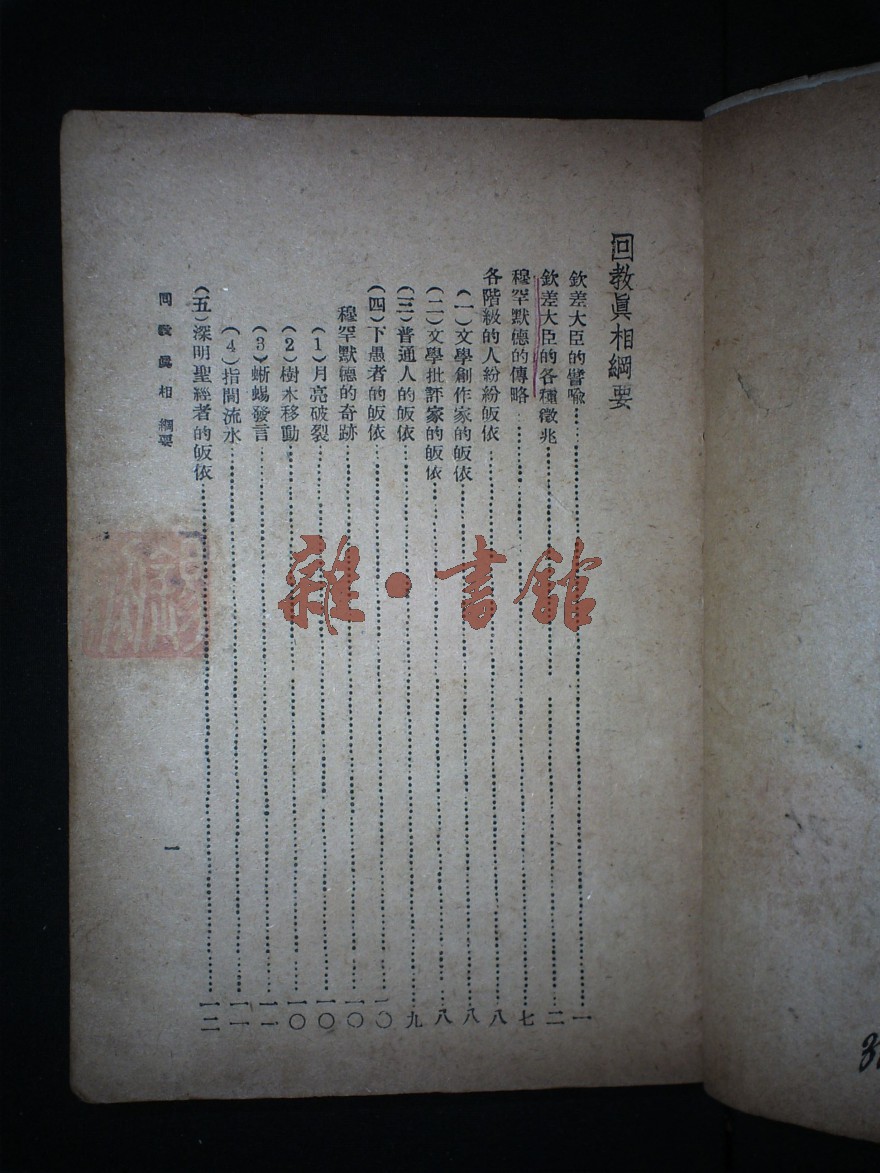 回教眞相綱要
欽差大臣的譬喩……一
欽差大臣的各種徵兆……二
穆罕默德的傳略……七
各階級的人紛紛皈依……八
(一)文學創作家的皈依……八
(二)文學批評家的皈依……八
(三)普通人的皈依……九
(四)下愚者的皈依……一〇
穆罕默德的奇跡……一〇
(1)月亮破裂……一〇
(2)樹木移動……一〇
(3)蜥蜴發言……一一
(4)指間流水……一一
(五)深明聖經者的皈依……一二
回敎眞相 綱要
一
雜·書館